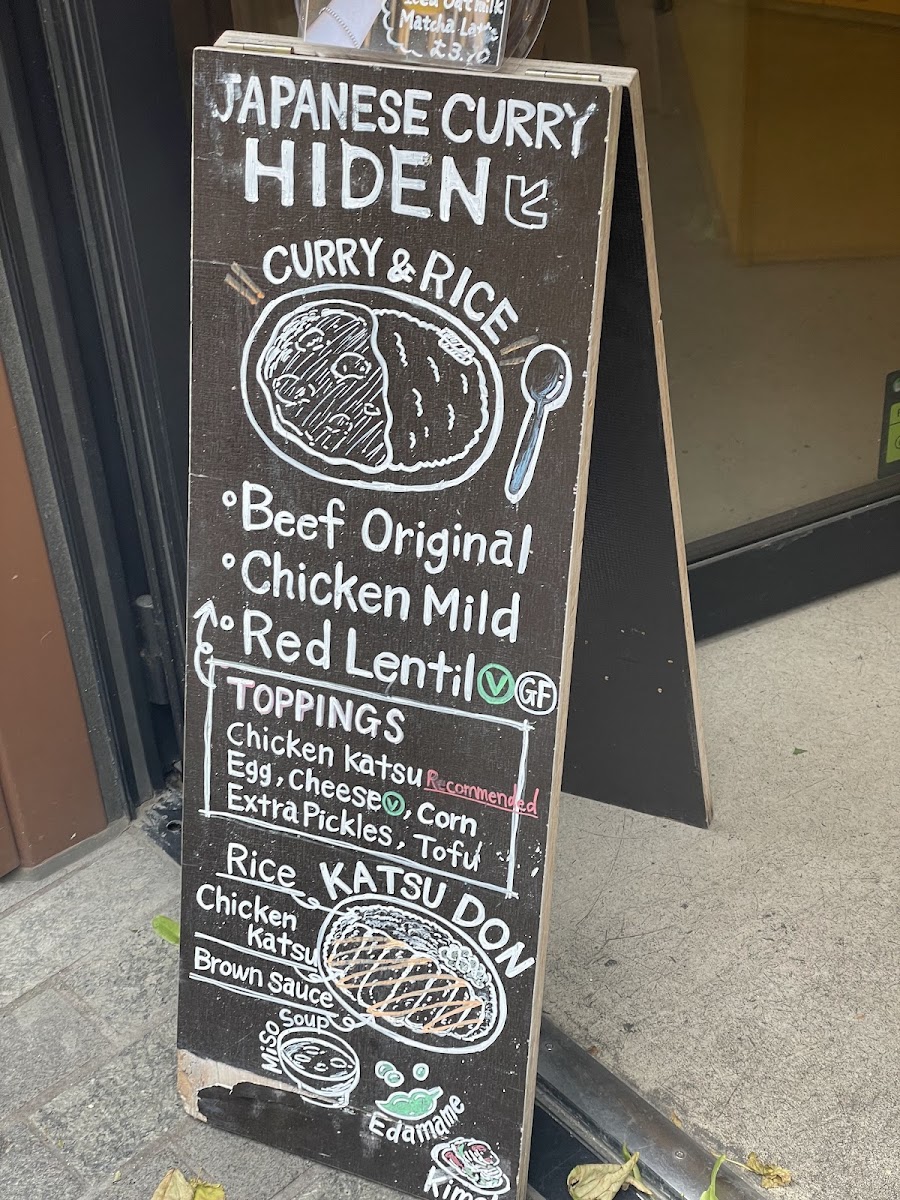 Matcha
JAPANESE CURRY
HIDEN
CURRY & RICE
Beef Original
Chicken Mild
Red Lentil V GF
TOPPINGS
Chicken Katsu Recommended
Egg, Cheese V, Corn
Extra Pickles, Tofu
KATSU DON
Rice
Chicken
Katsu
Brown Sauce
Miso Soup
Edamame